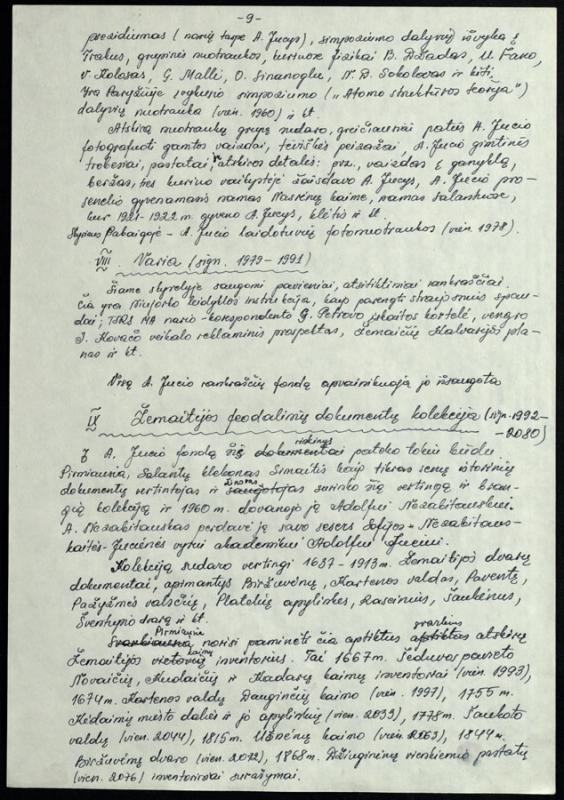 -9-
prezidiumas (narių tarpe A. Jucys), simpoziumo dalyvių išvyka į
Trakus, grupinės nuotraukos, kuriose fizikai B. Džadas, U. Fano,
V. Kolosas, G. Malli, O. Sinanoglu, N. D. Sokolovas ir kiti.
Yra Paryžiuje vykusio simpoziumo („Atomo struktūros teorija")
dalyvių nuotrauka (vien. 1960) ir kt.
Atskirą nuotraukų grupę sudaro, greičiausiai paties A. Jucio
fotografuoti gamtos vaizdai, tėviškės peizažai, A. Jucio gimtinės
trobesiai, pastatai, atskiros detalės: pvz., vaizdas į ganyklą,
beržas, ties kuriuo vaikystėje žaisdavo A. Jucys, A. Jucio pro-
senelio gyvenamasis namas Nasrėnų kaime, namas Salantuose,
kur 1921-1922 m. gyveno A. Jucys, klėtis ir kt.
Skyriaus pabaigoje - A. Jucio laidotuvių fotonuotraukos (vien. 1978).
VIII. Varia (sign. 1979-1991)
Šiame skyrelyje saugomi pavieniai, atsitiktiniai rankraščiai.
Čia yra Niujorko leidyklos instrukcija, kaip parengti straipsnius spau-
dai; TSRS MA nario-korespondento G. Petrovo įskaitos kortelė, vengro
I. Kovačo veikalo reklaminis prospektas, Žemaičių Kalvarijos pla-
nas ir kt.
Visą A. Jucio rankraščių fondą apvainikuoja jo išsaugota
IX Žemaitijos feodalinių dokumentų kolekcija (sign. 1992-
2080)
Į A. Jucio fondą šis dokumentai rinkinys pateko tokiu būdu.
Pirmiausia, Salantų klebonas Simaitis kaip tikras senų istorinių
dokumentų vertintojas ir saugotojas žinovas surinko šią vertingą ir bran-
gią kolekciją ir 1960 m. dovanojo ją Adolfui Nezabitauskui.
A. Nezabitauskas perdavė ją savo sesers Sofijos Nezabitaus-
kaitės-Jucienės vyrui akademikui Adolfui Juciui.
Kolekciją sudaro vertingi 1637-1913 m. Žemaitijos dvarų
dokumentai, apimantys Biržuvėnų, Kartenos valdas, Paventę,
Pažyžmės valsčių, Platelių apylinkes, Raseinius, Šaukėnus,
Šventupio dvarą ir kt.
Svarbiausia Pirmiausia norisi paminėti čia aptiktus svarbius aptiktus atskirų
Žemaitijos vietovių kaimų inventorius. Tai 1667 m. Šeduvos pavieto
Novaičių, Kudaičių ir Kadarų kaimų inventoriai (vien. 1993),
1674 m. Kartenos valdų Dauginčių kaimo (vien. 1997), 1755 m.
Kėdainių miesto dalies ir jo apylinkių (vien. 2033), 1778 m. Šaukoto
valdų (vien. 2044), 1815 m. Užpėnų kaimo (vien. 2063), 1844 m.
Biržuvėnų dvaro (vien. 2072), 1868 m. Džiuginėnų vienkiemio pastatų
(vien. 2076) inventoriniai surašymai.